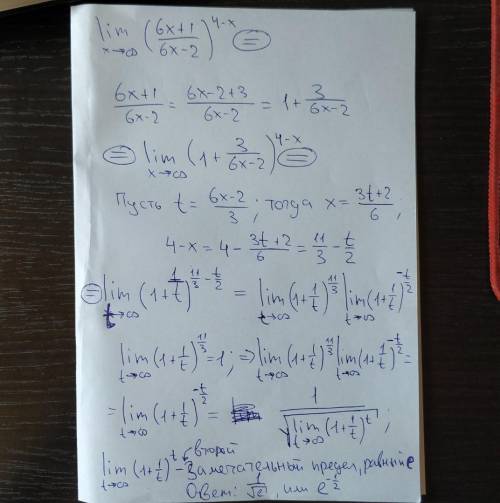 lim x→∞ ((6x+1)/(6x-2))^(4-x) =
(6x+1)/(6x-2) = (6x-2+3)/(6x-2) = 1 + 3/(6x-2)
= lim x→∞ (1 + 3/(6x-2))^(4-x) =
Пусть t = (6x-2)/3; тогда x = (3t+2)/6;
4-x = 4 - (3t+2)/6 = 11/3 - t/2
= lim t→∞ (1+1/t)^(11/3 - t/2) = lim t→∞ (1+1/t)^(11/3) lim t→∞ (1+1/t)^(-t/2)
lim t→∞ (1+1/t)^(11/3) = 1; ⇒ lim t→∞ (1+1/t)^(11/3) lim t→∞ (1+1/t)^(-t/2) =
= lim t→∞ (1+1/t)^(-t/2) = 1/√(lim t→∞ (1+1/t)^t);
lim t→∞ (1+1/t)^t - второй
замечательный предел, равный e
Ответ: 1/√e, или e^(-1/2)